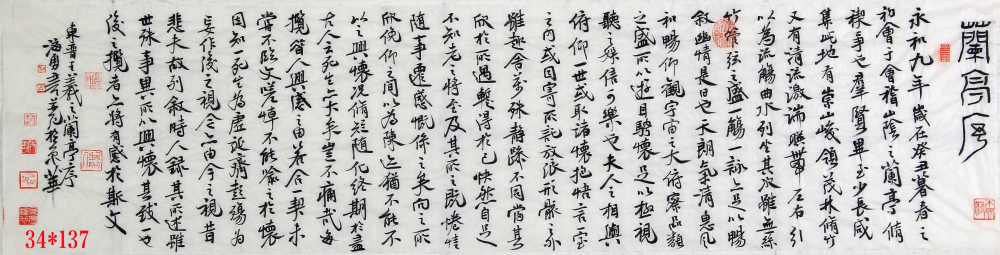 蘭亭序
永和九年歲在癸丑暮春之
初會于會稽山陰之蘭亭脩
禊事也羣賢畢至少長咸
集此地有崇山峻領茂林脩竹
又有清流激湍暎帶左右引
以為流觴曲水列坐其次雖無絲
竹管弦之盛一觴一詠亦足以暢
敘幽情是日也天朗氣清惠風
和暢仰觀宇宙之大俯察品類
之盛所以遊目騁懷足以極視
聽之娛信可樂也夫人之相與
俯仰一世或取諸懷抱悟言一室
之內或因寄所託放浪形骸之外
雖趣舍萬殊靜躁不同當其
欣於所遇暫得於己快然自足
不知老之將至及其所之既惓情
隨事遷感慨係之矣向之所
欣俛仰之間以為陳迹猶不能不
以之興懷況脩短隨化終期於盡
古人云死生亦大矣豈不痛哉每
攬昔人興感之由若合一契未
嘗不臨文嗟悼不能喻之於懷
固知一死生為虛誕齊彭殤為
妄作後之視今亦由今之視昔
悲夫故列敘時人錄其所述雖
世殊事異所以興懷其致一也
後之攬者亦將有感於斯文
東晉王羲之蘭亭序
海勇書於京華
34*137